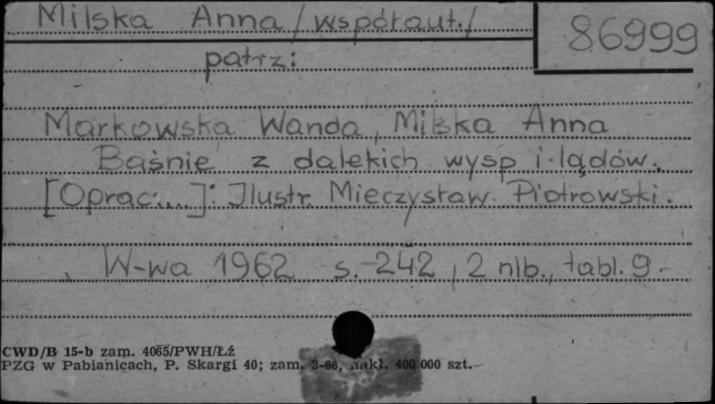 Milska Anna /współaut./
86999
patrz:
Markowska Wanda, Milska Anna
Baśnie z dalekich wysp i lądów.
[Oprac.:...]: Ilustr. Mieczysław Piotrowski.
W-wa 1962 s. 242, 2 nlb., tabl. 9.
CWD/B 15-b zam. 4065/PWH/Łź
PZG w Pabianicach, P. Skargi 40; zam. 3-66, nakł. 400 000 szt.